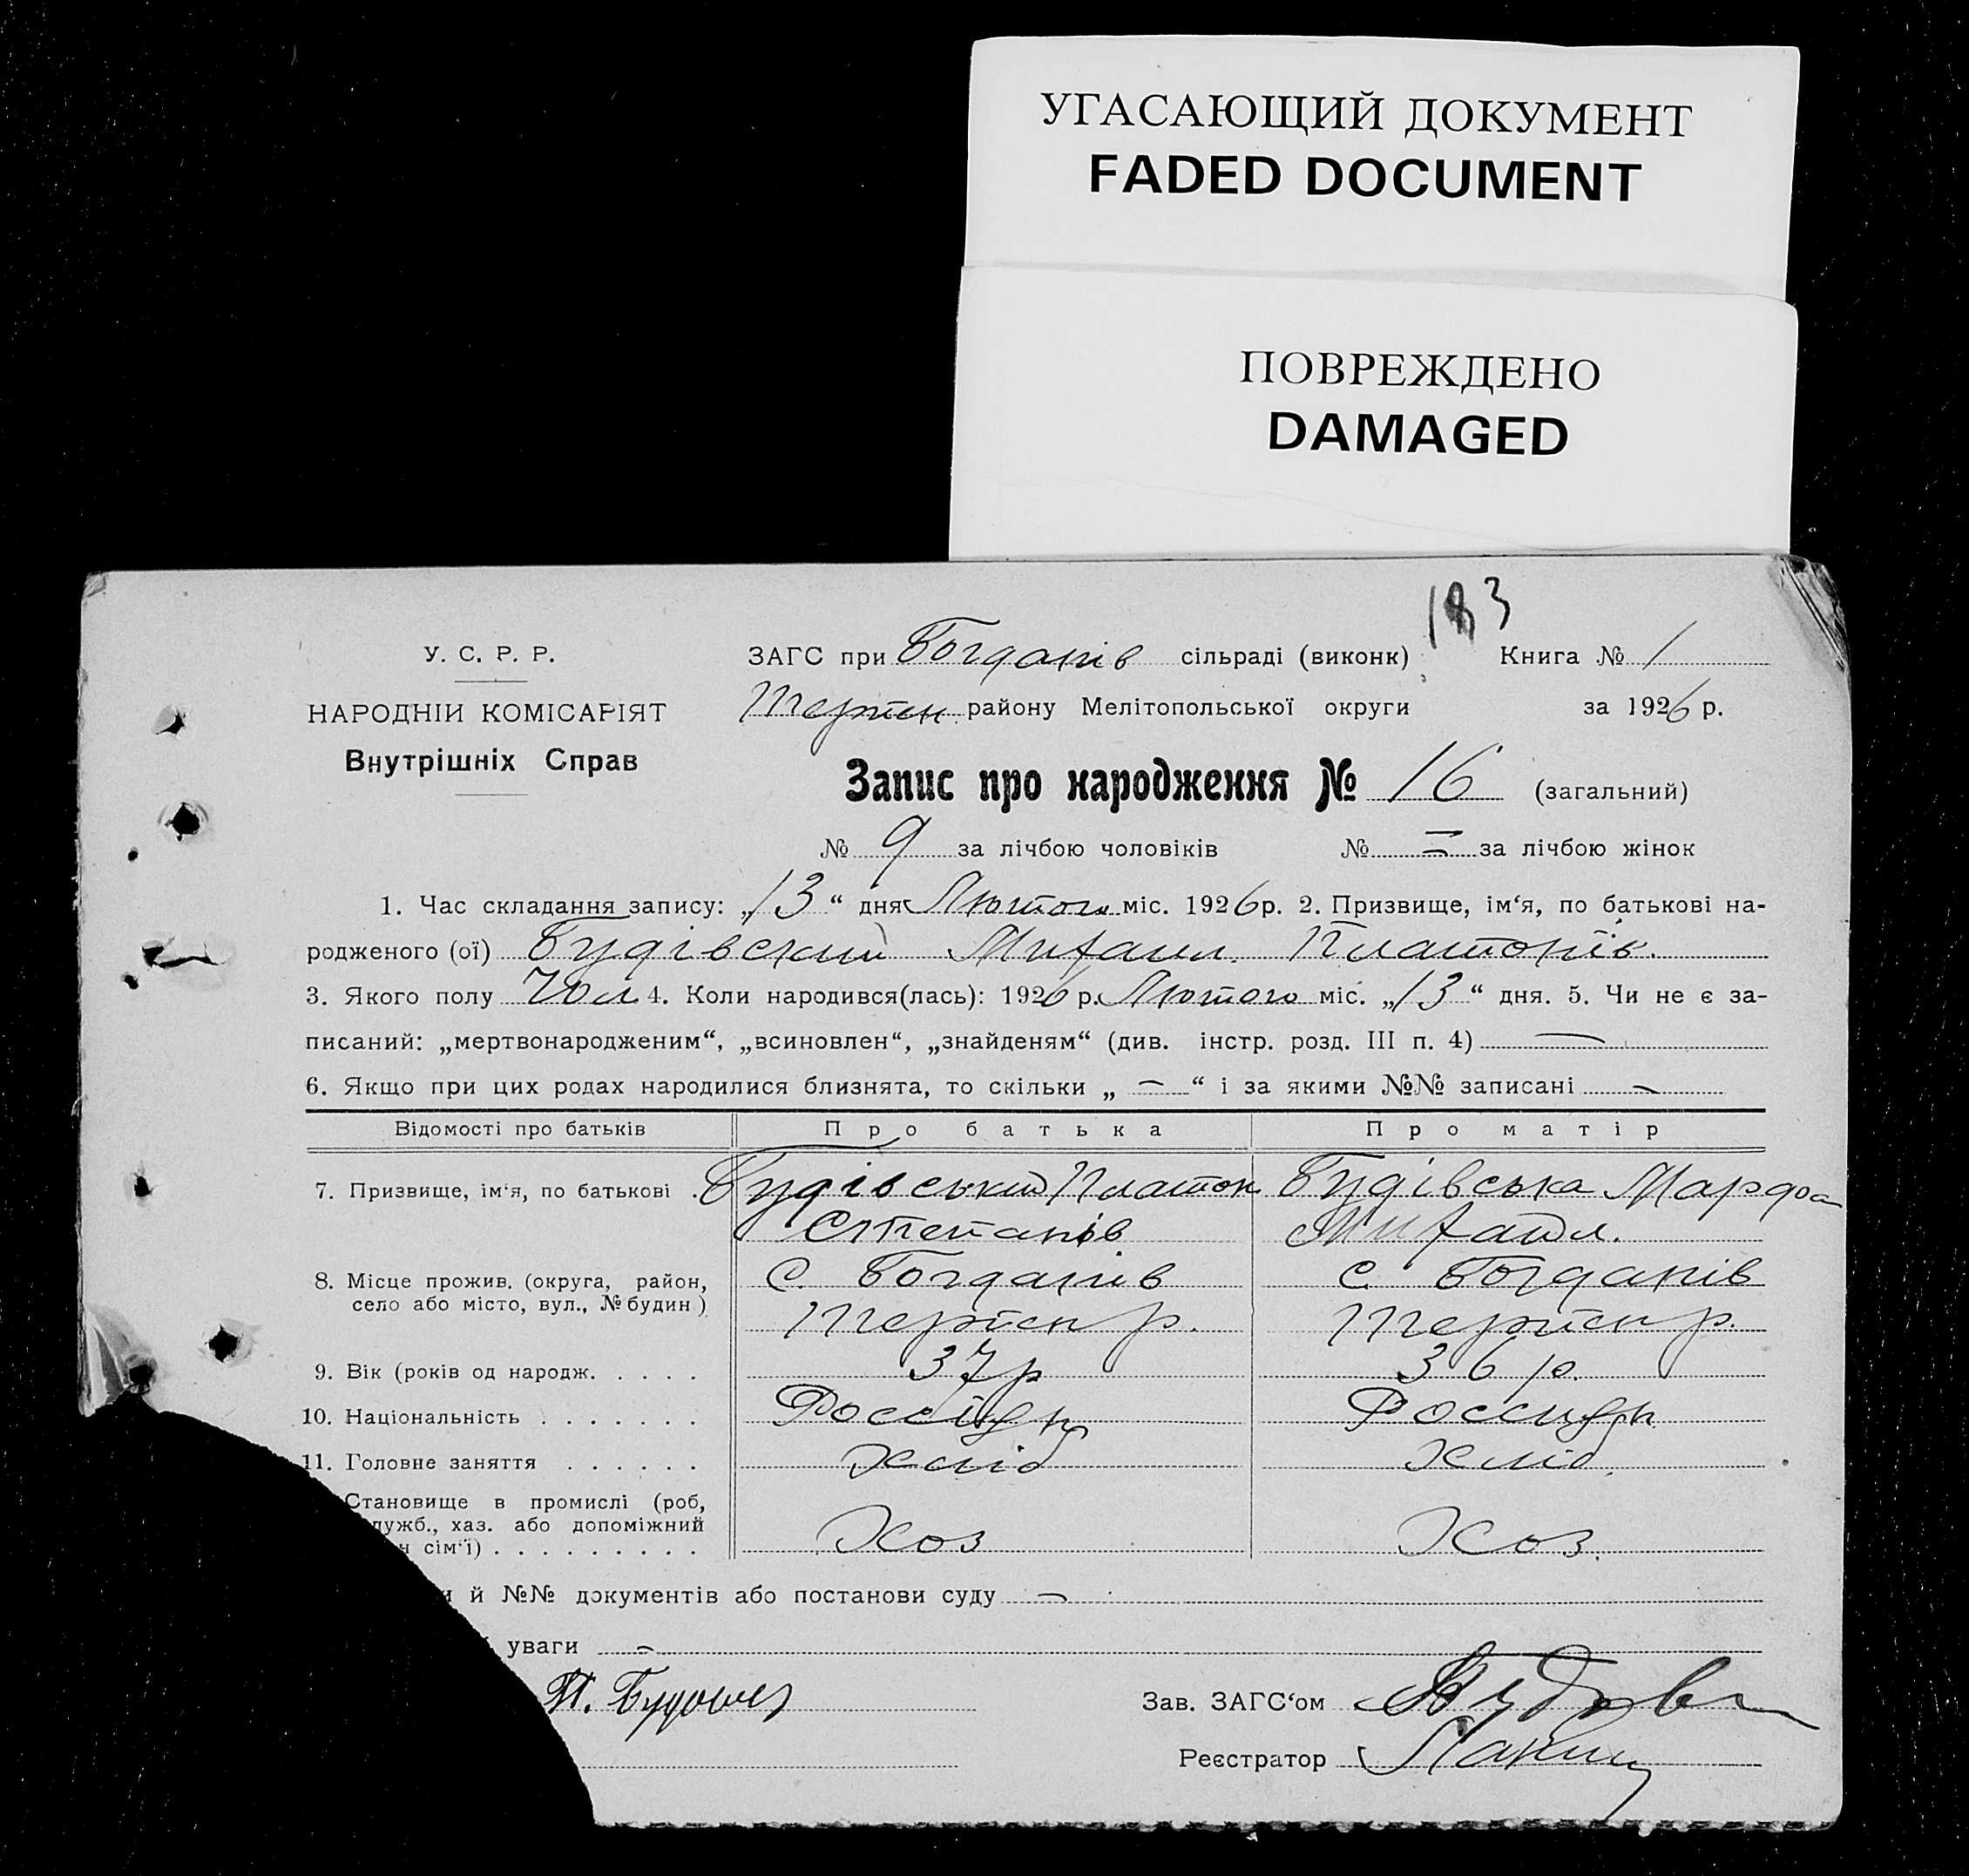 УГАСАЮЩИЙ ДОКУМЕНТ
FADED DOCUMENT
ПОВРЕЖДЕНО
DAMAGED
183
У. С. Р. Р.
НАРОДНІЙ КОМІСАРІЯТ
Внутрішніх Справ
ЗАГС при Богданів сільраді (виконк) Книга № 1
Терпен району Мелітопольської округи за 1926 р.
Запис про народження № 16 (загальний)
№ 9 за лічбою чоловіків № = за лічбою жінок
1. Час складання запису: „13“ дня Лютого міс. 1926 р. 2. Призвище, ім‘я, по батькові на-
родженого (ої) Будівский Михаил. Платонів.
3. Якого полу Чол 4. Коли народився(лась): 1926 р. Лютого міс. „13“ дня. 5. Чи не є за-
писаний: „мертвонародженим“, „всиновлен“, „знайденям“ (див. інстр. розд. III п. 4) —
6. Якщо при цих родах народилися близнята, то скільки „ — “ і за якими №№ записані —
Відомості про батьків Про батька Про матір
7. Призвище, ім‘я, по батькові . Будівський Платон Будівська Марфа
Степанів Михайл.
8. Місце прожив. (округа, район, с. Богданів с. Богданів
село або місто, вул., № будин ) Терпен р. Терпен р.
9. Вік (років од народж. . . . . 37 р 36 р.
10. Національність . . . . . . . Россіян Россиян
11. Головне заняття . . . . . . Хліб Хліб.
Становище в промислі (роб,
служб., хаз. або допоміжний
сім‘ї) . . . . . . . . . Хоз Хоз.
й №№ документів або постанови суду —
уваги —
П. Зав. ЗАГС‘ом
Реєстратор